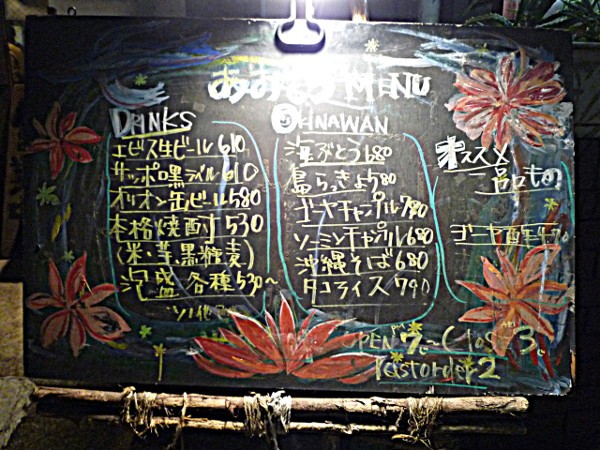 MENU
DRINKS
エビス生ビール 610
サッポロ黒ラベル 610
オリオン缶ビール 580
本格焼酎 530
(米・芋・黒糖・麦)
泡盛 各種 530〜
ソノ他
OKINAWAN
海ぶどう 680
島らっきょ 580
ゴーヤチャンプル 790
ソーミンチャンプル 680
沖縄そば 680
タコライス 790
オススメ
一品もの
ゴーヤ
OPEN 7〜Close 3
Last order 2